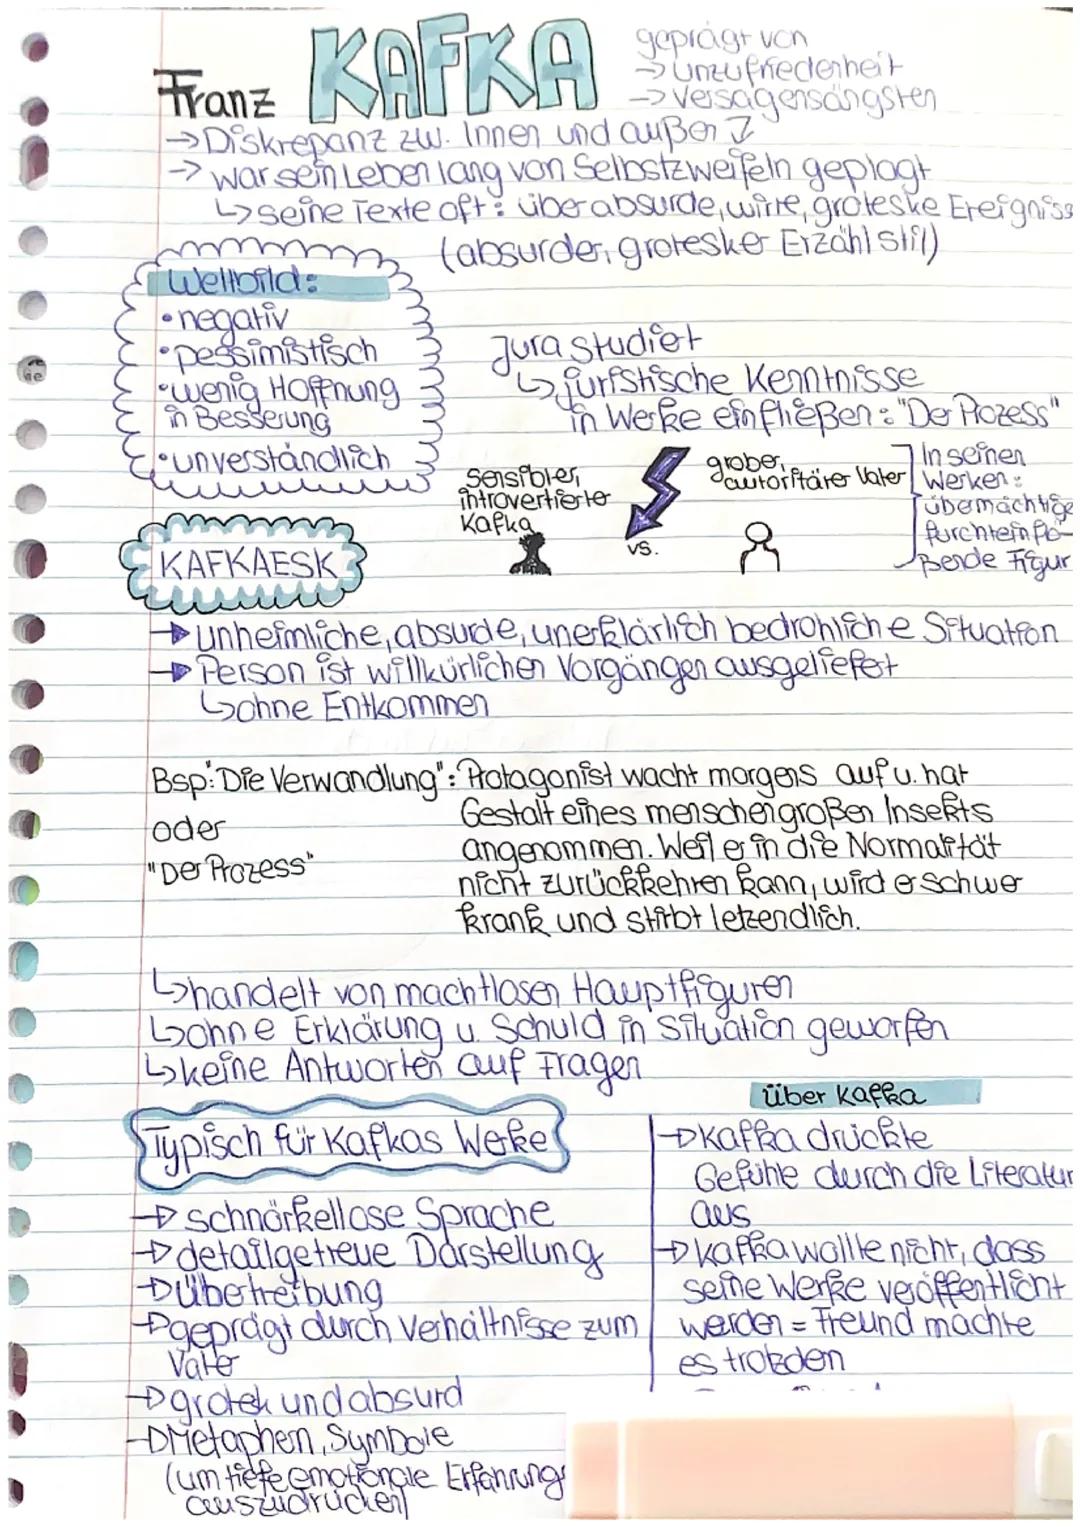 Franz KAFKA
geprägt von
→ Unzufriedenheit
→ Versagensängsten
→ Diskrepanz zw. Innen und außen
→ war sein Leben lang von Selbstzweifeln geplagt
↳ seine Texte oft: über absurde, wirre, groteske Ereigniss
(absurder, grotesker Erzählstil)
Weltbild:
• negativ
• pessimistisch
• wenig Hoffnung
in Besserung
• unverständlich
Jura studiert
↳ juristische Kenntnisse
in Werke einfließen: "Der Prozess"
sensibler,
introvertierter
Kafka
vs.
grober,
autoritärer Vater
In seinen
Werken:
übermächtige
furchteinflö-
ßende Figur
KAFKAESK
→ unheimliche, absurde, unerklärlich bedrohliche Situation
→ Person ist willkürlichen Vorgängen ausgeliefert
↳ ohne Entkommen
Bsp: "Die Verwandlung": Protagonist wacht morgens auf u. hat
Gestalt eines menschengroßen Insekts
angenommen. Weil er in die Normalität
nicht zurückkehren kann, wird er schwer
krank und stirbt letzendlich.
oder
"Der Prozess"
↳ handelt von machtlosen Hauptfiguren
↳ ohne Erklärung u. Schuld in Situation geworfen
↳ keine Antworten auf Fragen
Typisch für Kafkas Werke
→ schnörkellose Sprache
→ detailgetreue Darstellung
→ Übertreibung
→ geprägt durch Verhältnisse zum
Vater
→ grotek und absurd
→ Metaphen, Symbole
(um tiefe emotionale Erfahrungs
auszudrücken)
über Kafka
→ Kafka drückte
Gefühle durch die Literatur
aus
→ Kafka wollte nicht, dass
seine Werke veröffentlicht
werden = Freund machte
es trotzden